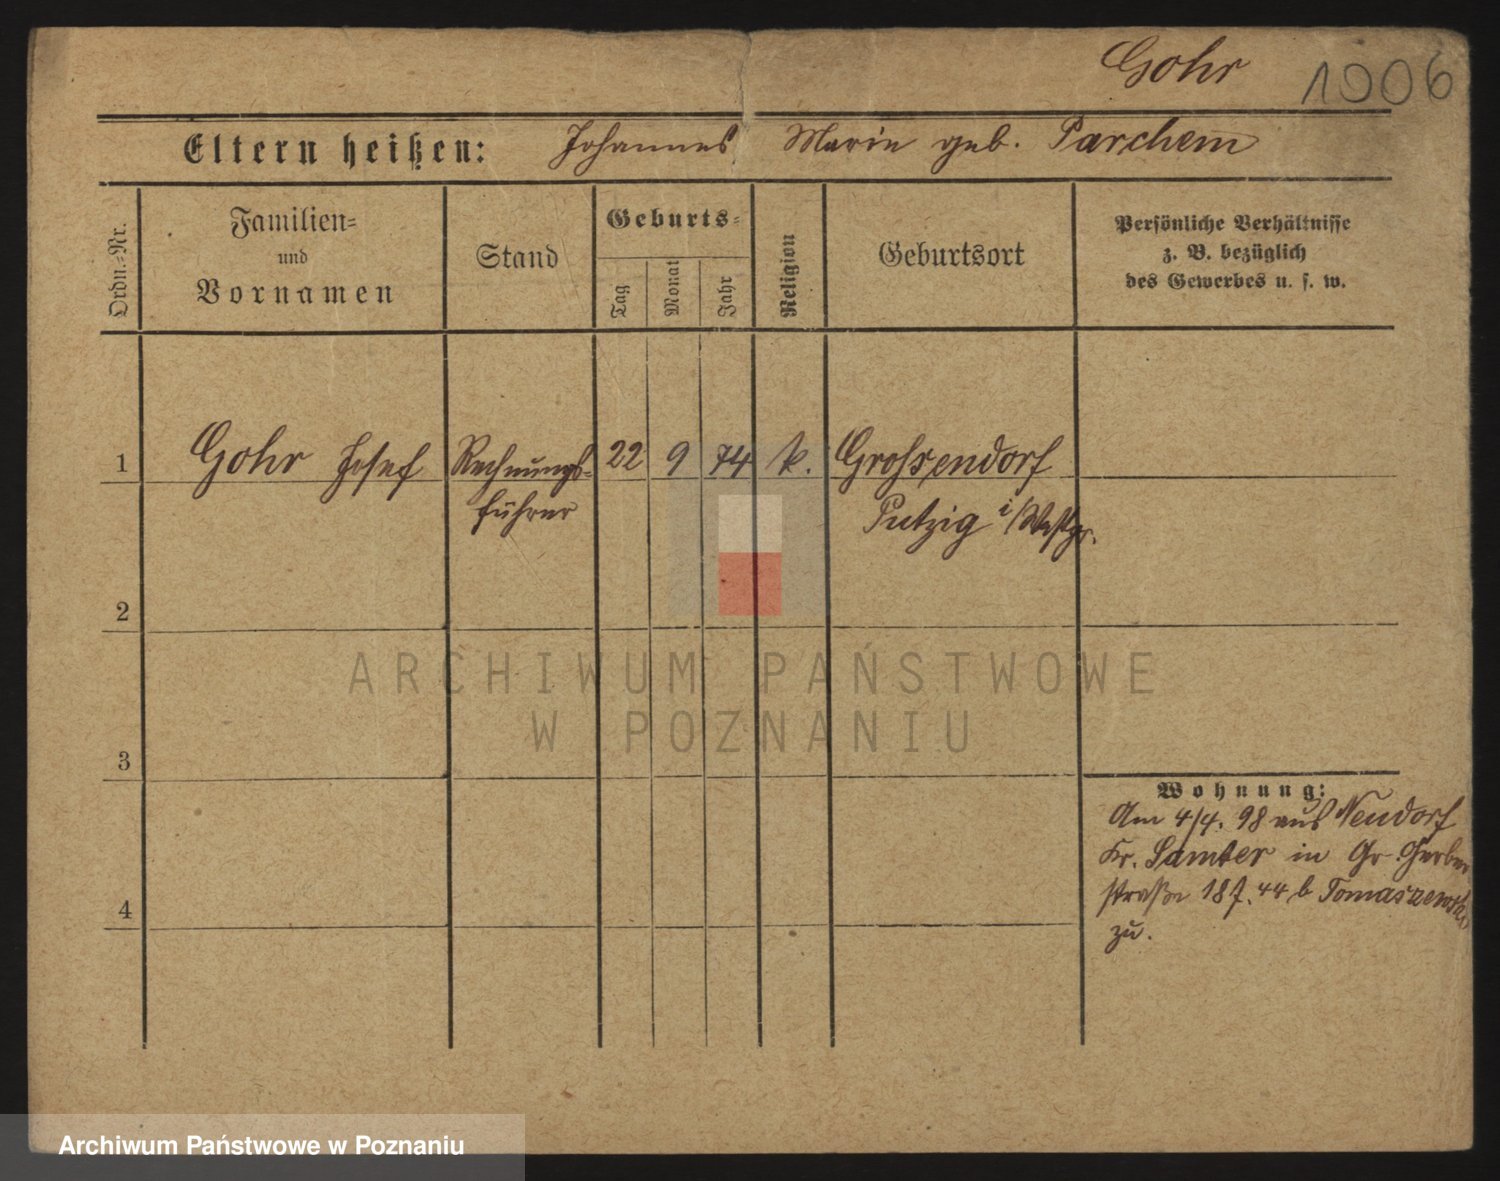 Gohr 1906
Eltern heißen: Johannes Marie geb. Parchem
Ordn.-Nr.
Familien-
und
Vornamen
Stand
Geburts-
Tag
Monat
Jahr
Religion
Geburtsort
Persönliche Verhältnisse
z. B. bezüglich
des Gewerbes u. s. w.
1 Gohr Josef Rechnungs- 22 9 74 k. Grohsendorf
führer Putzig i/Westpr.
2
ARCHIWUM PAŃSTWOWE
W POZNANIU
3
Wohnung:
Am 4/4. 98 aus Neudorf
Kr. Samter in Gr. Gerber
4 straße 18 44 b Tomaszewski
zu.
Archiwum Państwowe w Poznaniu